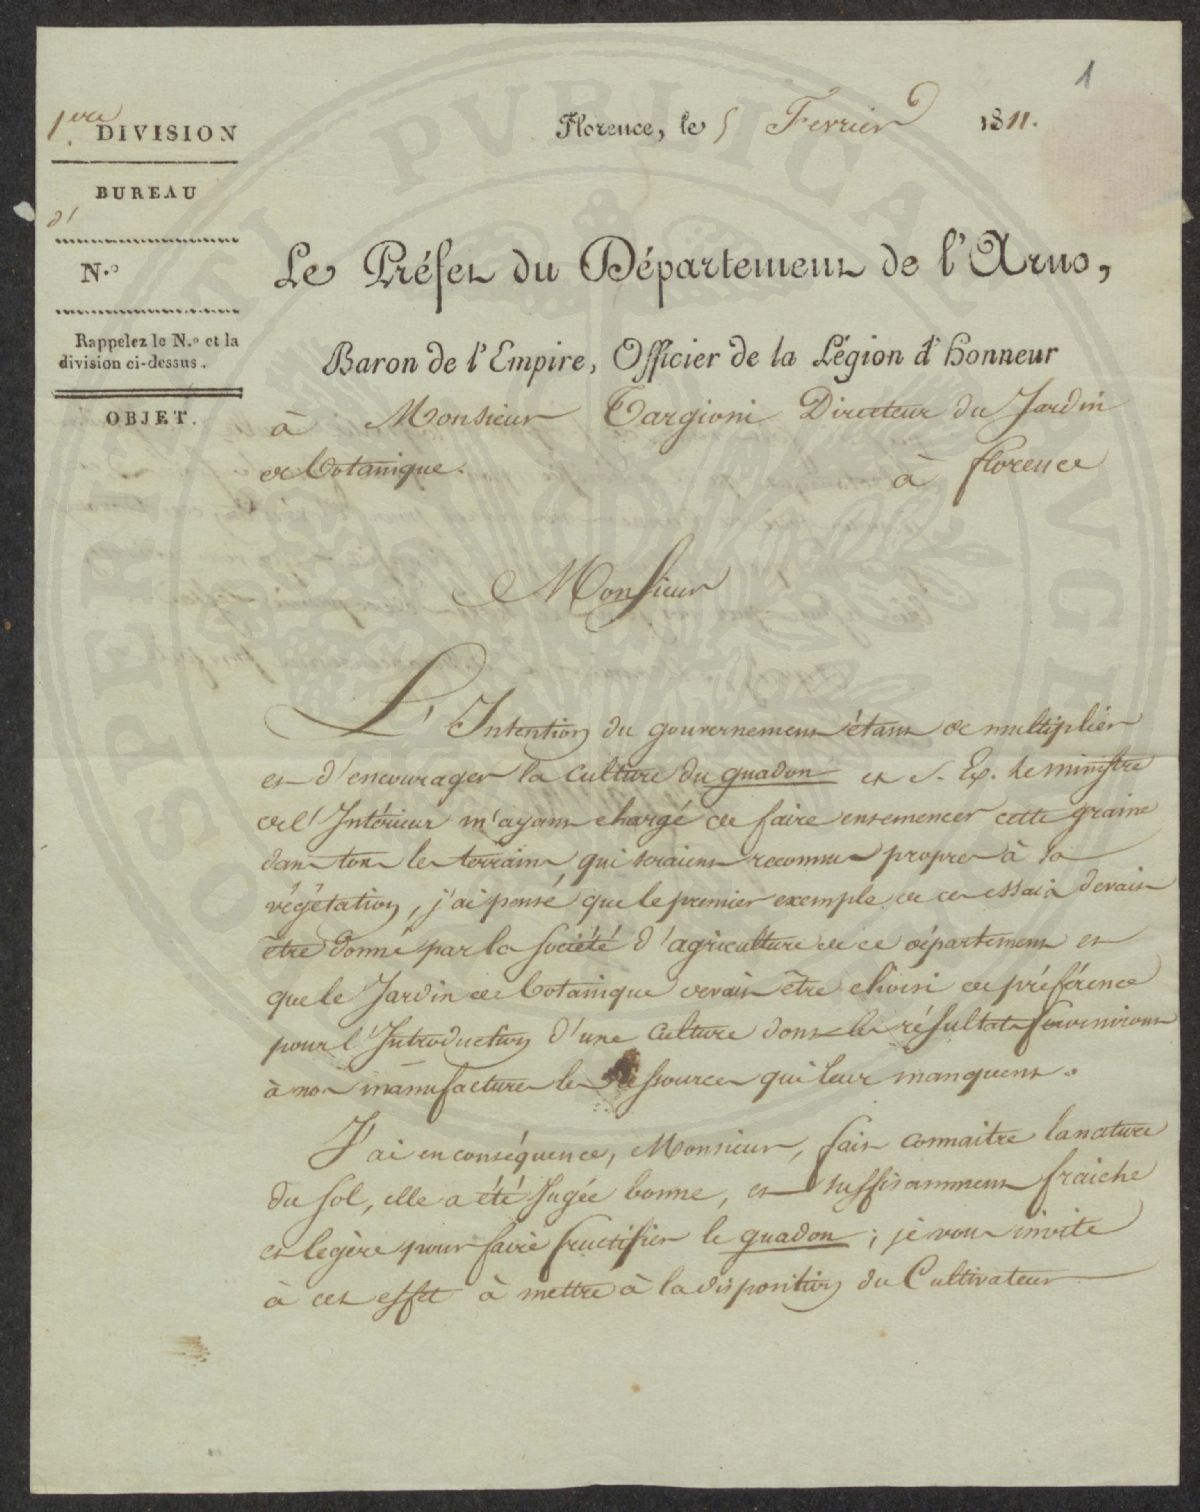 1
1ere DIVISION
BUREAU
d'
N.º
Rappelez le N.º et la
division ci-dessus.
OBJET.
Florence, le 5 Fevrier 1811.
Le Préfet du Département de l'Arno,
Baron de l'Empire, Officier de la Légion d'honneur
à Monsieur Targioni Directeur du Jardin
de botanique. à florence
Monsieur
L'Intention du gouvernement étant de multiplier
et d'encourager la culture du guadon et S. Ex. le ministre
de l'Intérieur m'ayant chargé de faire ensemencer cette graine
dans tous les terrains, qui seraient reconnus propres à sa
végétation, j'ai pensé que le premier exemple de ces essais devait
être donné par la société d'agriculture de ce département et
que le Jardin de botanique devait être choisi de préférence
pour l'Introduction d'une culture dont les résultats fourniront
à nos manufactures les ressources qui leur manquent.
J'ai en conséquence, Monsieur, fait connaitre la nature
du sol, elle a été Jugée bonne, et suffisamment fraiche
et legère pour faire fructifier le guadon; je vous invite
à cet effet à mettre à la disposition du Cultivateur
SUPERIORITATI PUBLICAE